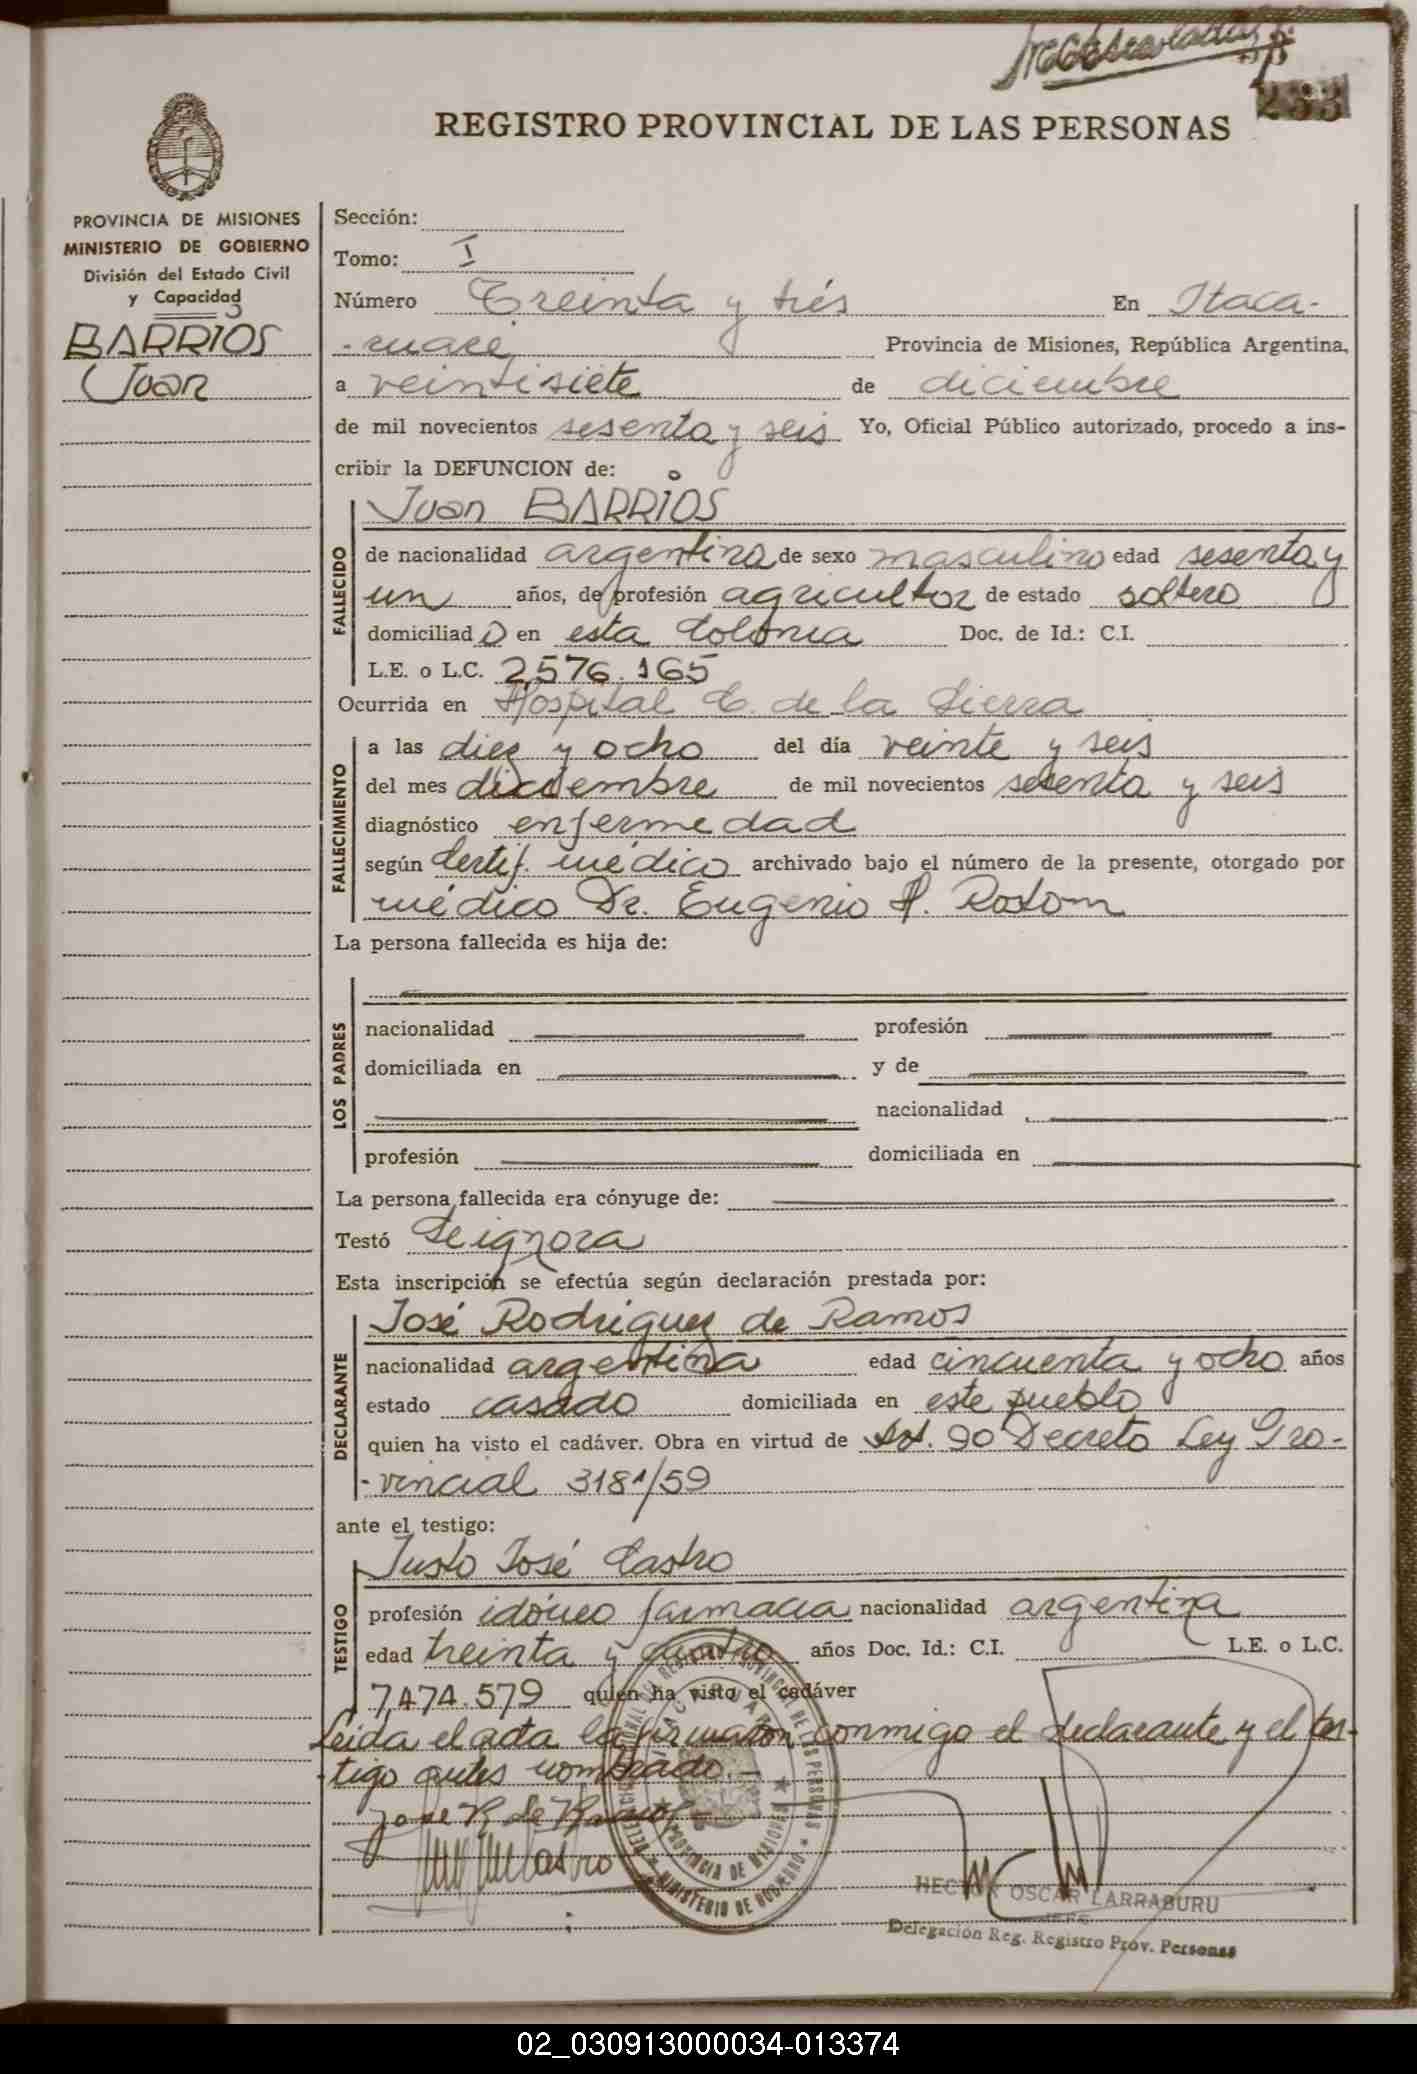 REGISTRO PROVINCIAL DE LAS PERSONAS
233
PROVINCIA DE MISIONES
MINISTERIO DE GOBIERNO
División del Estado Civil
y Capacidad
BARRIOS
Juan
Sección:
Tomo: I
Número Treinta y trés En Itaca-
-ruaré, Provincia de Misiones, República Argentina,
a veintisiete de diciembre
de mil novecientos sesenta y seis Yo, Oficial Público autorizado, procedo a ins-
cribir la DEFUNCION de:
FALLECIDO
Juan BARRIOS
de nacionalidad argentina de sexo masculino edad sesenta y
un años, de profesión agricultor de estado soltero
domiciliad o en esta Colonia Doc. de Id.: C.I.
L.E. o L.C. 2,576.165
Ocurrida en Hospital C. de la Sierra
FALLECIMIENTO
a las diez y ocho del día veinte y seis
del mes diciembre de mil novecientos sesenta y seis
diagnóstico enfermedad
según Certif. médico archivado bajo el número de la presente, otorgado por
médico Dr. Eugenio
La persona fallecida es hija de:
LOS PADRES
nacionalidad profesión
domiciliada en y de
nacionalidad
profesión domiciliada en
La persona fallecida era cónyuge de:
Testó Se ignora
Esta inscripción se efectúa según declaración prestada por:
DECLARANTE
José Rodriguez de Ramos
nacionalidad argentina edad cincuenta y ocho años
estado casado domiciliada en este pueblo
quien ha visto el cadáver. Obra en virtud de Art. 90 Decreto Ley Pro-
-vincial 3181/59
ante el testigo:
TESTIGO
Justo José Castro
profesión idóneo farmacia nacionalidad argentina
edad treinta y cuatro años Doc. Id.: C.I. L.E. o L.C.
7,474.579 quien ha visto el cadáver
Leida el acta la firmaron conmigo el declarante y el tes-
-tigo antes nombrado.-
Jose R de Ramos
Castro
HECTOR OSCAR LARRABURU
JEFE
Delegación Reg. Registro Prov. Personas
PROVINCIA DE MISIONES
MINISTERIO DE GOBIERNO
02_030913000034-013374